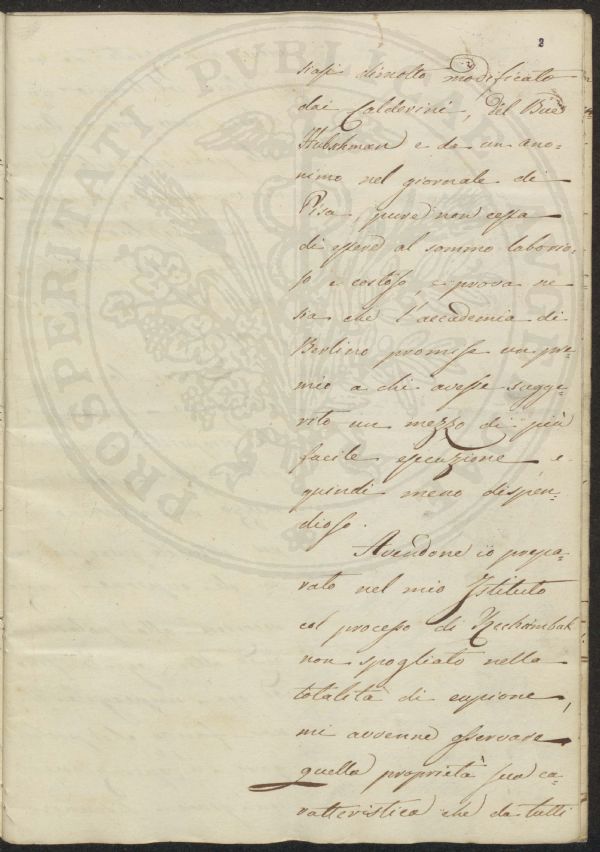 2
siasi dimolto modificato
dai Calderini, del Bue
Hubshman e da un ano=
nimo nel giornale di
Pisa, pure non cessa
di essere al sommo laborio=
so e costoso, e prova ne
sia che l'accademia di
Berlino promesse un pre=
mio a chi avesse sugge=
rito un mezzo di più
facile esecuzione e
quindi meno dispen=
dioso.
Avendone io prepa=
rato nel mio Istituto
col processo di
non spogliato nella
totalità di eupione,
mi avvenne osservare
quella proprietà sua ca=
ratteristica che da tutti
PROSPERITATI PUBLICAE